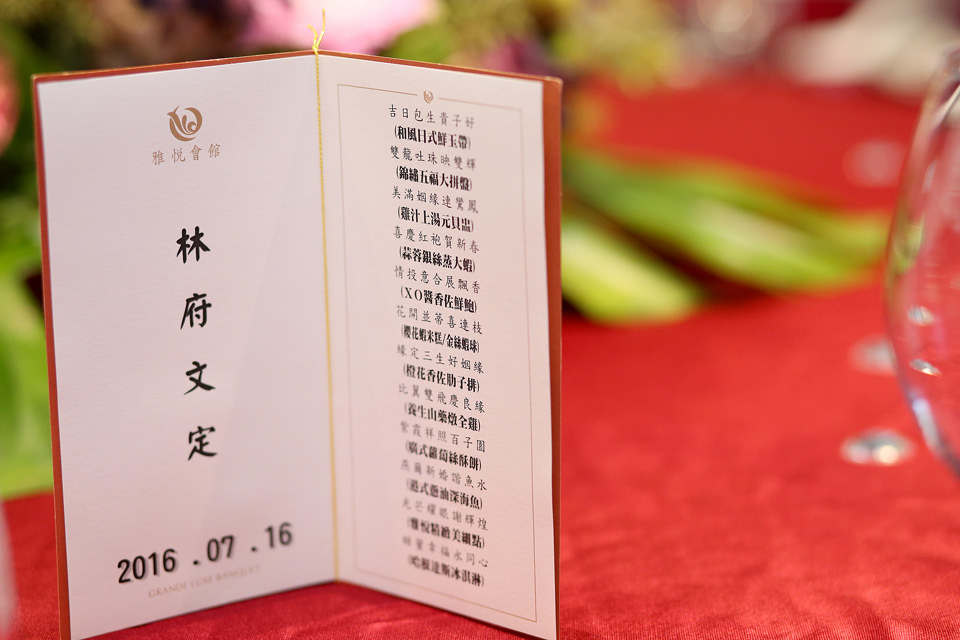 雅悅會館
林府文定
2016.07.16
GRANDE LUXE BANQUET
吉日包生貴子好
(和風日式鮮玉帶)
雙龍吐珠映雙輝
(錦繡五福大拼盤)
美滿姻緣連鸞鳳
(雞汁上湯元貝盅)
喜慶紅袍賀新春
(蒜蓉銀絲蒸大蝦)
情投意合展飄香
(XO醬香佐鮮鮑)
花開並蒂喜連枝
(櫻花蝦米糕/金絲蝦球)
緣定三生好姻緣
(橙花香佐肋子排)
比翼雙飛慶良緣
(養生山藥燉全雞)
紫霞祥照百子圓
(廣式蘿蔔絲酥餅)
燕爾新婚諧魚水
(港式蔥油深海魚)
光芒耀眼謝輝煌
(雅悅精緻美細點)
甜蜜幸福永同心
(哈根達斯冰淇淋)